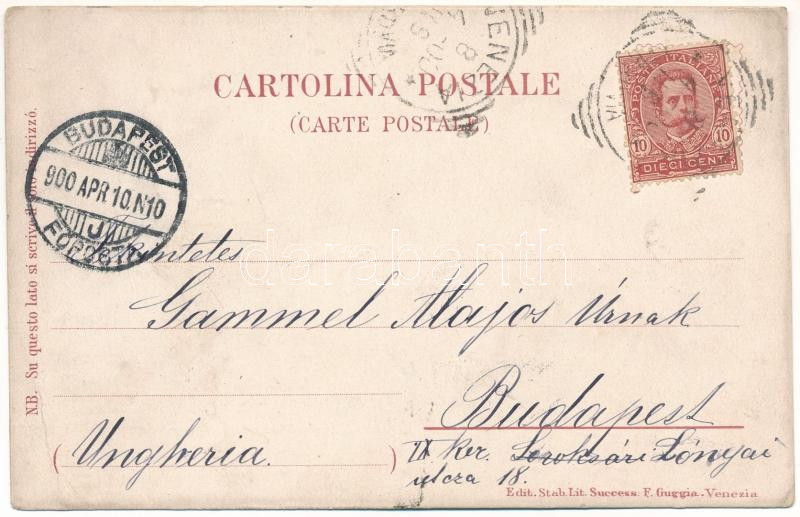 VENEZIA
8
CARTOLINA POSTALE
(CARTE POSTALE)
POSTE ITALIANE
10 10
DIECI CENT.
BUDAPEST
900 APR.10.N10
J
FŐPOSTA
N.B. Su questo lato si scrive il solo indirizzo.
Tekintetes
Gammel Alajos Úrnak
Budapest
(Ungheria.)
IX ker. Soroksári Lónyai
utcza 18.
Edit. Stab. Lit. Success. F. Guggia - Venezia
darabanth